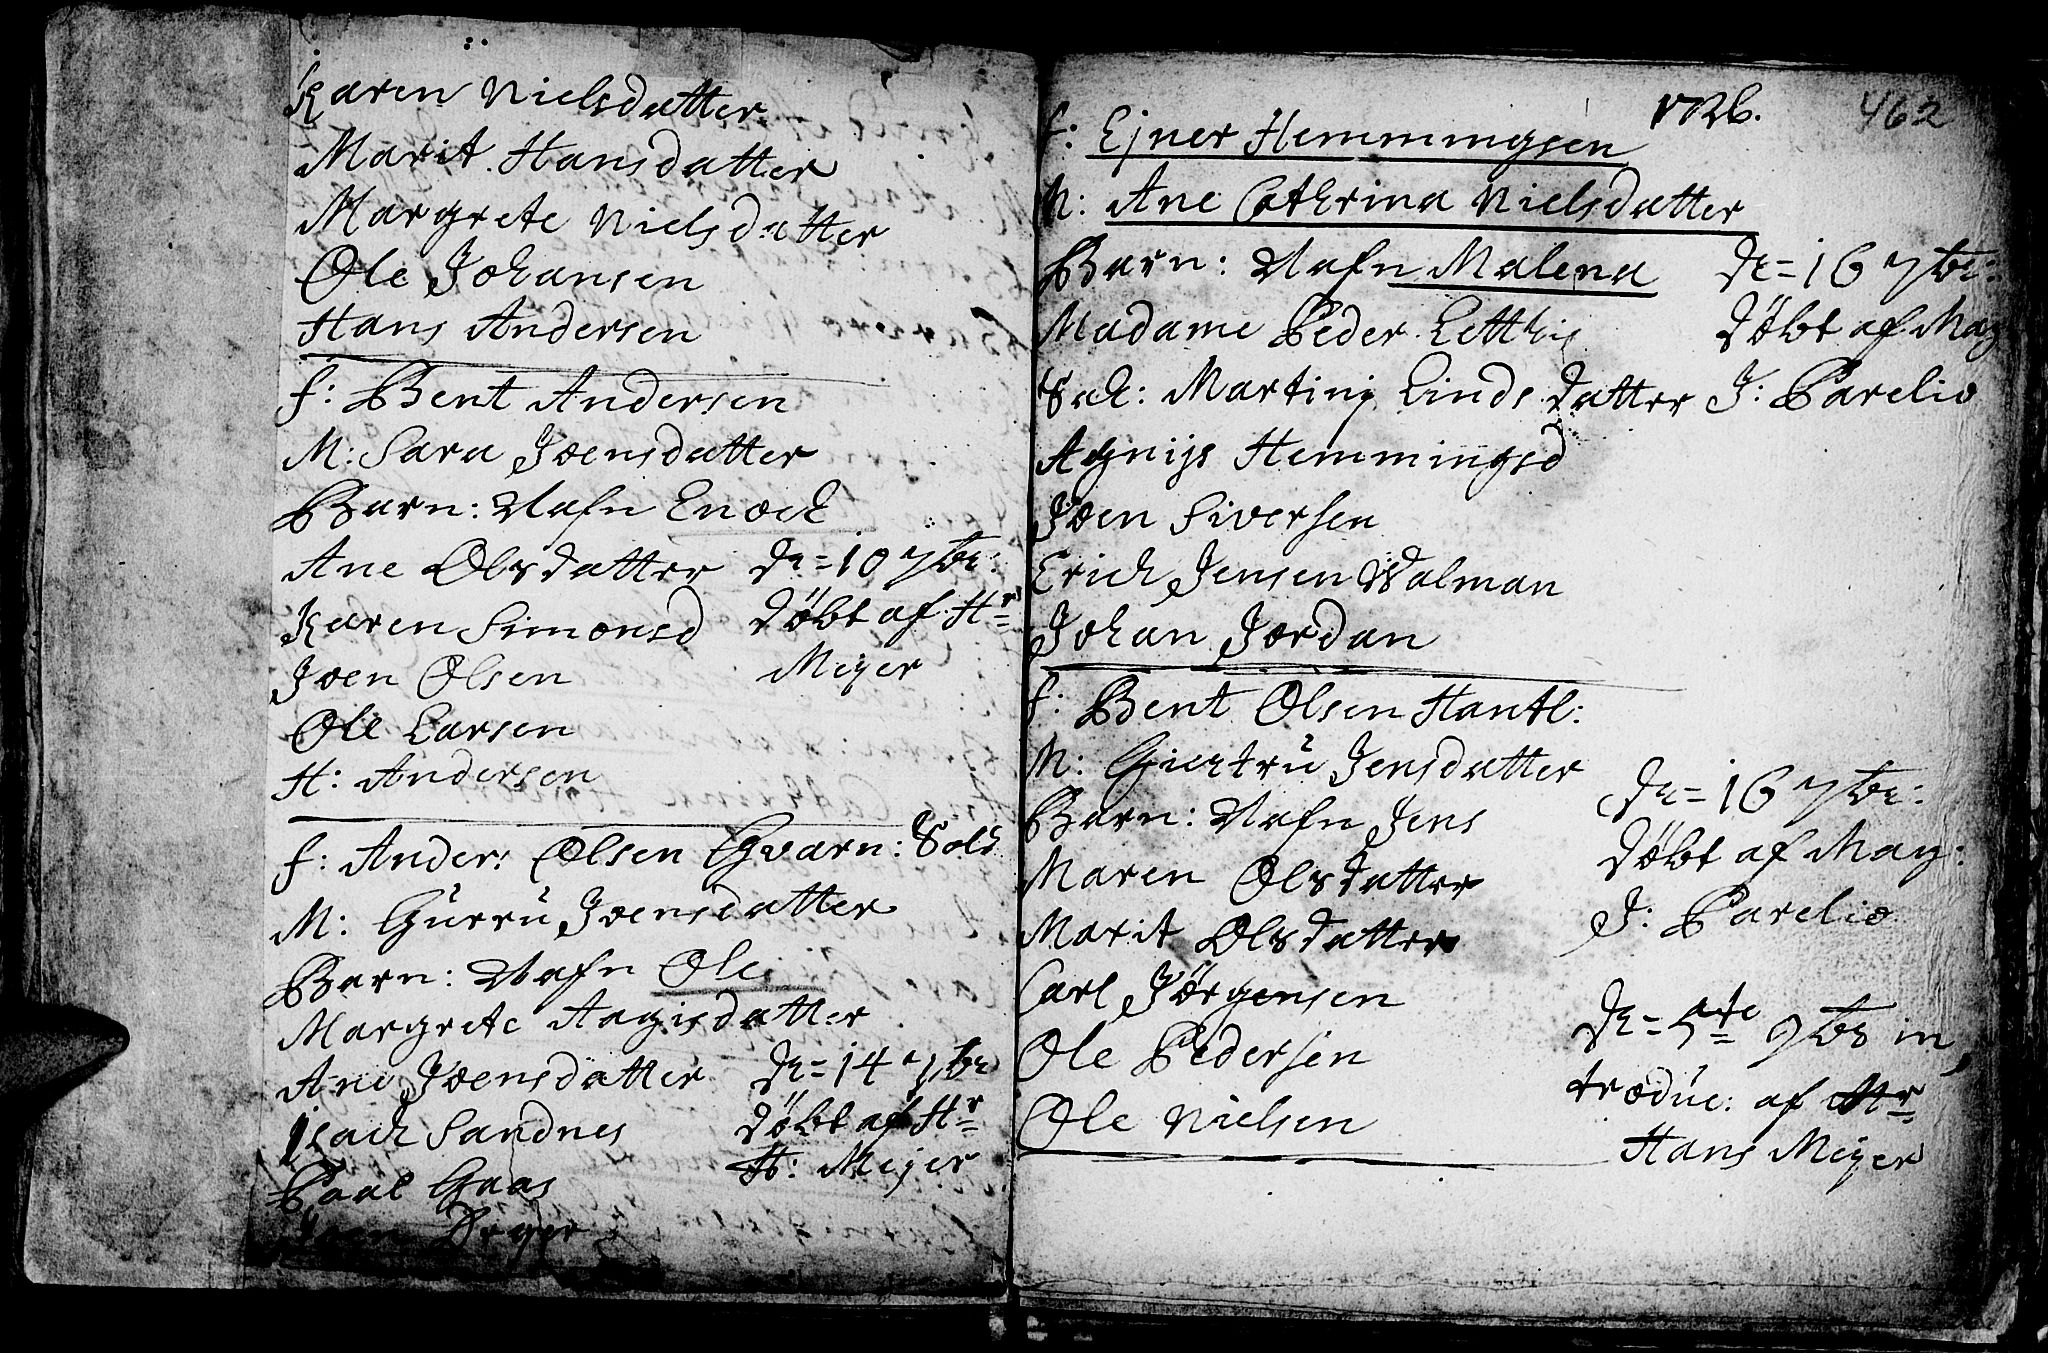 Karen Nielsdatter
Marit Hansdatter
Margrete Nielsdatter
Ole Johansen
Hans Andersen
f: Bent Andersen
M: Sara Joensdatter
Barn: Nafn Enoch
Ane Olsdatter
Karen Simonsd
Joen Olsen
Ole Larsen
H: Andersen
dn = 10 7br:
døbt af Hr
Meyer
f: Ander: Olsen Qvarn: Sold
M: Gurru Joensdatter
Barn: Nafn Ole
Margrete Aagisdatter
Ane Joensdatter
Isach Sandnes
Paal Gaas
Joen Dreyer
dn = 14 7br
døbt af Hr
H: Mejer
1726. 462
f: Ejner Hemmingsen
M: Ane Catherina Nielsdatter
Barn: Nafn Malena
Madame Peder
Sal: Martinj Linds datter
Agnijs Hemmingsd
Joen Siversen
Erich Jensen Walman
Johan Jordan
dn = 16 7br:
døbt af Mag
J: Parelio
f: Bent Olsen Hantl:
M: Giertru Jensdatter
Barn: Nafn Jens
Maren Olsdatter
Marit Olsdatter
Carl Jørgensen
Ole Pedersen
Ole Nielsen
dn = 16 7br:
døbt af Mag:
J: Parelio
dn = 5te 9br in,
troduc: af Hr
Hans Meyer